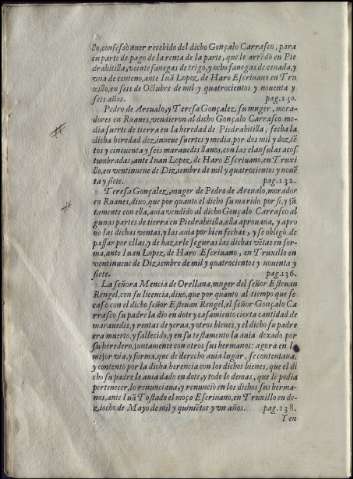 llo, confessò auer recebido del dicho Gonçalo Carrasco, para
en parte de pago de la renta de la parte, que le arrēdò en Pie
drahitilla, veinte fanegas de trigo, y ocho fanegas de ceuada, y
vna de centeno, ante Iuā Lopez, de Haro Escriuano en Tru
xillo, en seis de Octubre de mil y quatrocientos y nouenta y
seis años. pag. 130.
Pedro de Areualo, y Teresa Gonçalez, su muger, morado
res en Ruanes, vendieron al dicho Gonçalo Carrasco me-
dia suerte de tierra en la heredad de Piedrahitilla, fecha la
dicha heredad diez y nueue suertes y media por dos mil y doziē
tos y cincuenta y seis marauedis llanos, con las clausulas acos
tumbradas, ante Iuan Lopez, de Haro Escriuano, en Truxi
llo, en veintinueue de Diziembre de mil y quatrocientos y nouē
ta y siete. pag. 132.
Teresa Gonçalez, muger de Pedro de Areualo, morador
en Ruanes, dixo, que por quanto el dicho su marido por si, y jū
tamente con ella, auia vendido al dicho Gonçalo Carrasco al
gunas partes de tierra en Piedrahitilla, ella aprouaua, y apro
uo las dichas ventas, y los auia por bien fechas, y se obligò de
passar por ellas, y de hazerle seguras las dichas vētas en for-
ma, ante Iuan Lopez, de Haro Escriuano, en Truxillo en
veintinueue de Diziembre de mil y quatrocientos y nouenta y
siete. pag. 136.
La señora Mencia de Orellana, muger del señor Esteuan
Rengel, con su licencia, dixo, que por quanto al tiempo que se
casò con el dicho señor Esteuan Rengel, el señor Gonçalo Ca
rrasco su padre la dio en dote y casamiento cierta cantidad de
marauedis, y rentas de yerua, y otros bienes, y el dicho su padre
era muerto, y fallecido, y en su testamento la auia dexado por
su heredera, juntamente con otros sus hermanos: agora en la
mejor via, y forma, que de derecho auia lugar, se contentaua,
y contentò por la dicha herencia con los dichos bienes, que el di
cho su padre le auia dado en dote, y todo lo demas, que le podia
pertenecer, lo renunciaua, y renunciò en los dichos sus herma-
nos, ante Iuā Tostado el moço Escriuano, en Truxillo en de-
ziocho de Mayo de mil y quinientos y vn años. pag. 138.
Ten